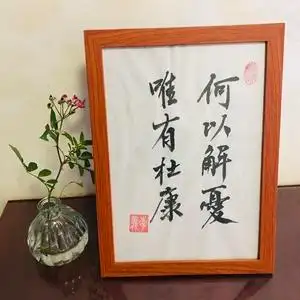 何以解憂
唯有杜康